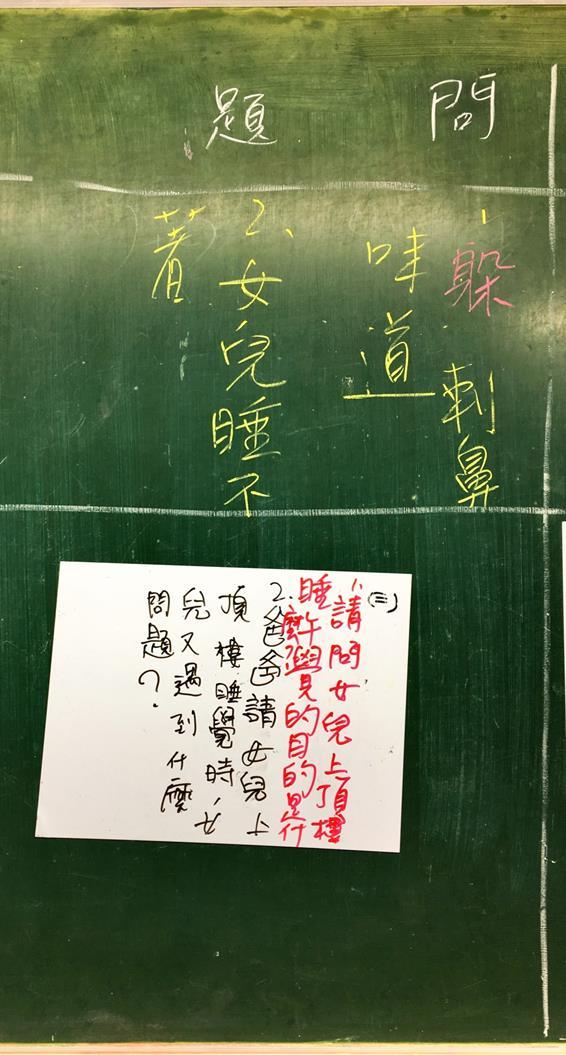 問題
1、躲刺鼻
味道
2、女兒睡不
著
(三)
1、請問女兒上頂樓
睡覺的目的是什
麼
2.爸爸請女兒上
頂樓睡覺時,女
兒又遇到什麼
問題?